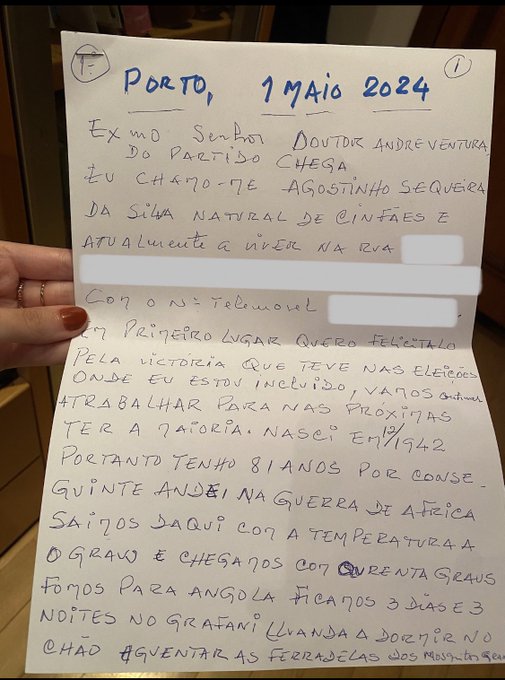 Fi 1
PORTO, 1 MAIO 2024
EXMO Senhor DOUTOR ANDRE VENTURA
DO PARTIDO CHEGA
EU CHAMO-ME AGOSTINHO SEQUEIRA
DA SILVA NATURAL DE CINFÃES E
ATUALmente a VIVER NA RUA
COM O Nº Telemovel
EM PRIMEIRO LUGAR QUERO FELICITALO
PELA VICTÓRIA QUE TEVE NAS ELEIÇÕES
ONDE EU ESTOU INCLUIDO, VAMOS continuar
ATRABALHAR PARA NAS PRÓXIMAS
TER A MAIORIA. NASCI EM 12/1942
PORTANTO TENHO 81 ANOS POR CONSE-
GUINTE ANDEI NA GUERRA DE AFRICA
SAIMOS DAQUI COM A TEMPERATURA A
O GRAUS E CHEGAMOS COM QURENTA GRAUS
FOMOS PARA ANGOLA FICAMOS 3 DIAS E 3
NOITES NO GRAFANI LLUANDA A DORMIR NO
CHÃO AGUENTAR AS FERRADELAS DOS MOSQUITOS